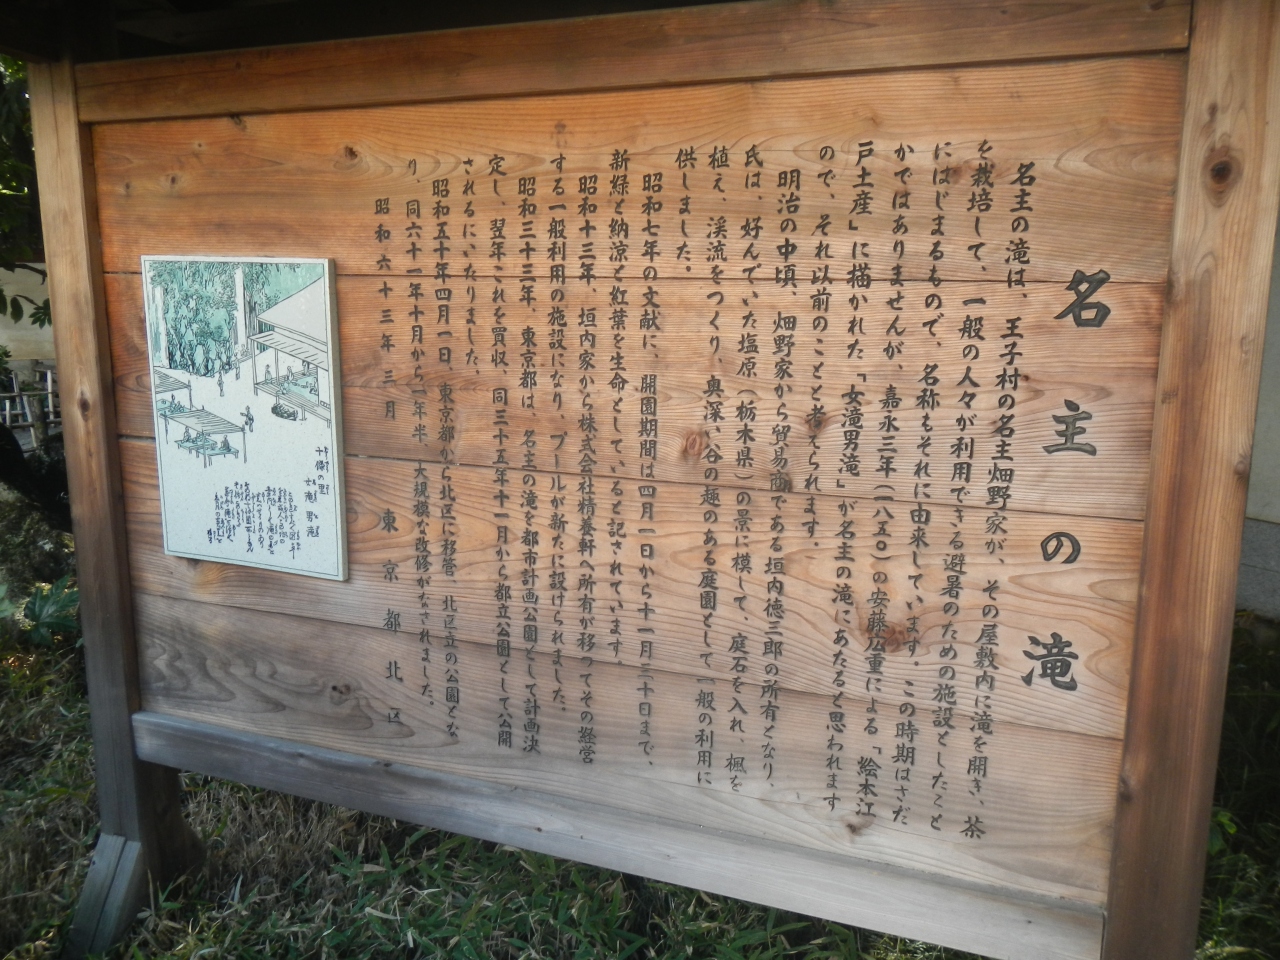 名主の滝
名主の滝は、王子村の名主畑野家が、その屋敷内に滝を開き、茶
を栽培して、一般の人々が利用できる避暑のための施設としたこと
にはじまるもので、名称もそれに由来しています。この時期はさだ
かではありませんが、嘉永三年（一八五〇）の安藤広重による「絵本江
戸土産」に描かれた「女滝男滝」が名主の滝にあたると思われます
ので、それ以前のことと考えられます。
明治の中頃、畑野家から貿易商である垣内徳三郎の所有となり、
氏は、好んでいた塩原（栃木県）の景に模して、庭石を入れ、楓を
植え、渓流をつくり、奥深い谷の趣のある庭園として一般の利用に
供しました。
昭和七年の文献に、開園期間は四月一日から十一月三十日まで、
新緑と納涼と紅葉を生命としていると記されています。
昭和十三年、垣内家から株式会社精養軒へ所有が移ってその経営
する一般利用の施設になり、プールが新たに設けられました。
昭和三十三年、東京都は、名主の滝を都市計画公園として計画決
定し、翌年これを買収、同三十五年十一月から都立公園として公開
されるにいたりました。
昭和五十年四月一日、東京都から北区に移管 北区立の公園とな
り、同六十一年十月から一年半、大規模な改修がなされました。
昭和六十三年三月
東京都北区
十條の里
女滝 男滝